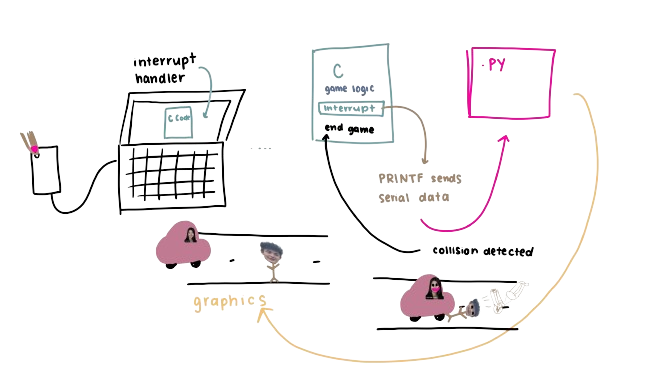 interrupt
handler
C Code
C
game logic
interrupt
end game
.PY
PRINTF sends
serial data
collision detected
graphics